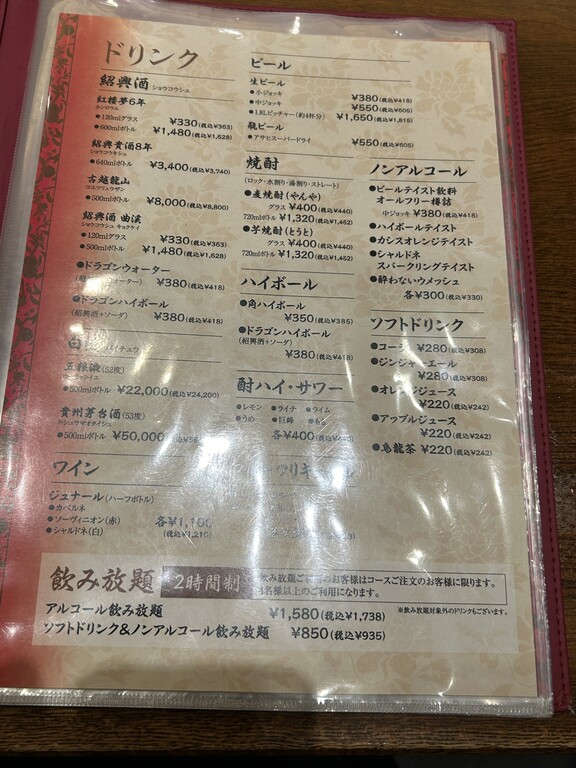 ドリンク
紹興酒 ショウコウシュ
紅楼夢6年
●120mlグラス ¥330(税込¥363)
●500mlボトル ¥1,480(税込¥1,628)
紹興貴酒8年
●640mlボトル ¥3,400(税込¥3,740)
古越龍山
●500mlボトル ¥8,000(税込¥8,800)
紹興酒 曲渓
ショウコウシュ キョクケイ
●120mlグラス ¥330(税込¥363)
●500mlボトル ¥1,480(税込¥1,628)
●ドラゴンウォーター
¥380(税込¥418)
●ドラゴンハイボール
(紹興酒+ソーダ) ¥380(税込¥418)
(52度)
●500mlボトル ¥22,000(税込¥24,200)
貴州茅台酒(53度)
●500mlボトル ¥50,000
ワイン
ジュナール(ハーフボトル)
●カベルネ
●ソーヴィニオン(赤) 各¥1,100
●シャルドネ(白) (税込¥1,210)
ビール
生ビール
●小ジョッキ ¥380(税込¥418)
●中ジョッキ ¥550(税込¥605)
●1.8Lピッチャー(約4杯分) ¥1,650(税込¥1,815)
瓶ビール
●アサヒスーパードライ ¥550(税込¥605)
焼酎
(ロック・水割り・湯割り・ストレート)
●麦焼酎(やんや)
グラス ¥400(税込¥440)
720mlボトル ¥1,320(税込¥1,452)
●芋焼酎(とうと)
グラス ¥400(税込¥440)
720mlボトル ¥1,320(税込¥1,452)
ハイボール
●角ハイボール
¥350(税込¥385)
●ドラゴンハイボール
(紹興酒+ソーダ)
¥380(税込¥418)
酎ハイ・サワー
●レモン ●ライチ ●ライム
●うめ ●巨峰 ●もも
各¥400(税込¥440)
ノンアルコール
●ビールテイスト飲料
オールフリー樽詰
中ジョッキ ¥380(税込¥418)
●ハイボールテイスト
●カシスオレンジテイスト
●シャルドネ
スパークリングテイスト
●酔わないウメッシュ
各¥300(税込¥330)
ソフトドリンク
●コーラ ¥280(税込¥308)
●ジンジャーエール
¥280(税込¥308)
●オレンジジュース
¥220(税込¥242)
●アップルジュース
¥220(税込¥242)
●烏龍茶 ¥220(税込¥242)
飲み放題 2時間制
お客様はコースご注文のお客様に限ります。
名様以上のご利用になります。
アルコール飲み放題 ¥1,580(税込¥1,738)
※飲み放題対象外のドリンクもございます。
ソフトドリンク&ノンアルコール飲み放題 ¥850(税込¥935)